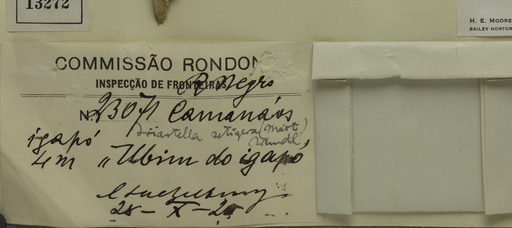 13272
H. E. MOORE
BAILEY HORTOR
COMMISSÃO RONDON
INSPECÇÃO DE FRONTEIRAS
R. Negro
Nº 23071 Camanáos
Iriartella setigera (Mart.)
Wendl
igapó
4m "Ubim do igapó"
28-X-28